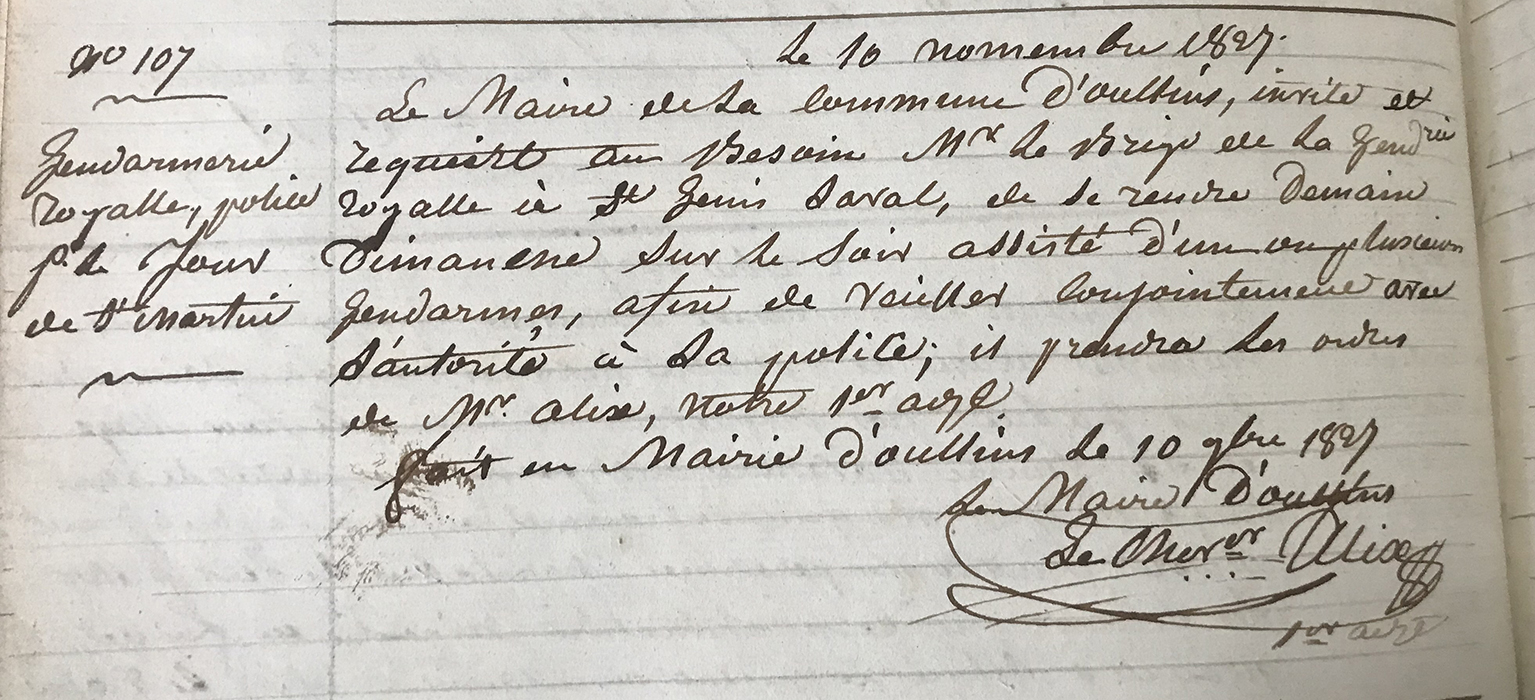 No 107
Gendarmerie
royalle, police
p. le Jour
de St Martin
Le 10 novembre 1827.
Le Maire de la Commune D'oullins, invite et
requiert au Besoin Mr Le Brigr de la Gendrie
royalle à St Genis Laval, de se rendre Demain
Dimanche sur le soir assisté d'un ou plusieurs
Gendarmes, afin de veiller Conjointement avec
L'autorité à La police; il prendra les ordres
de Mr. alix, notre 1er
fait en Mairie D'oullins le 10 9bre 1827
Le Maire D'oullins
Le Chever Alix
1er